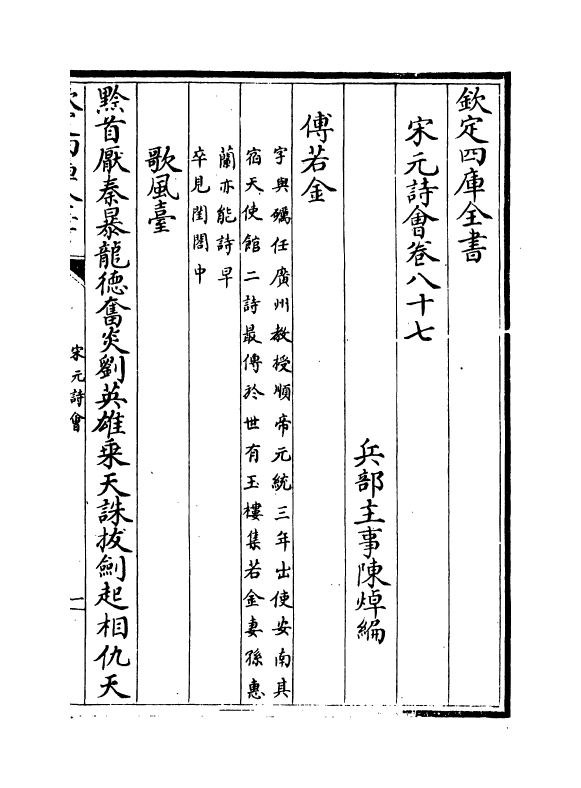 欽定四庫全書
宋元詩會卷八十七
兵部主事陳焯編
傅若金
字與礪任廣州教授順帝元統三年出使安南其
宿天使館二詩最傳於世有玉樓集若金妻孫惠
蘭亦能詩早
卒見閨閤中
歌風臺
黔首厭秦暴龍德奮炎劉英雄乘天誅拔劍起相仇天
宋元詩會
一